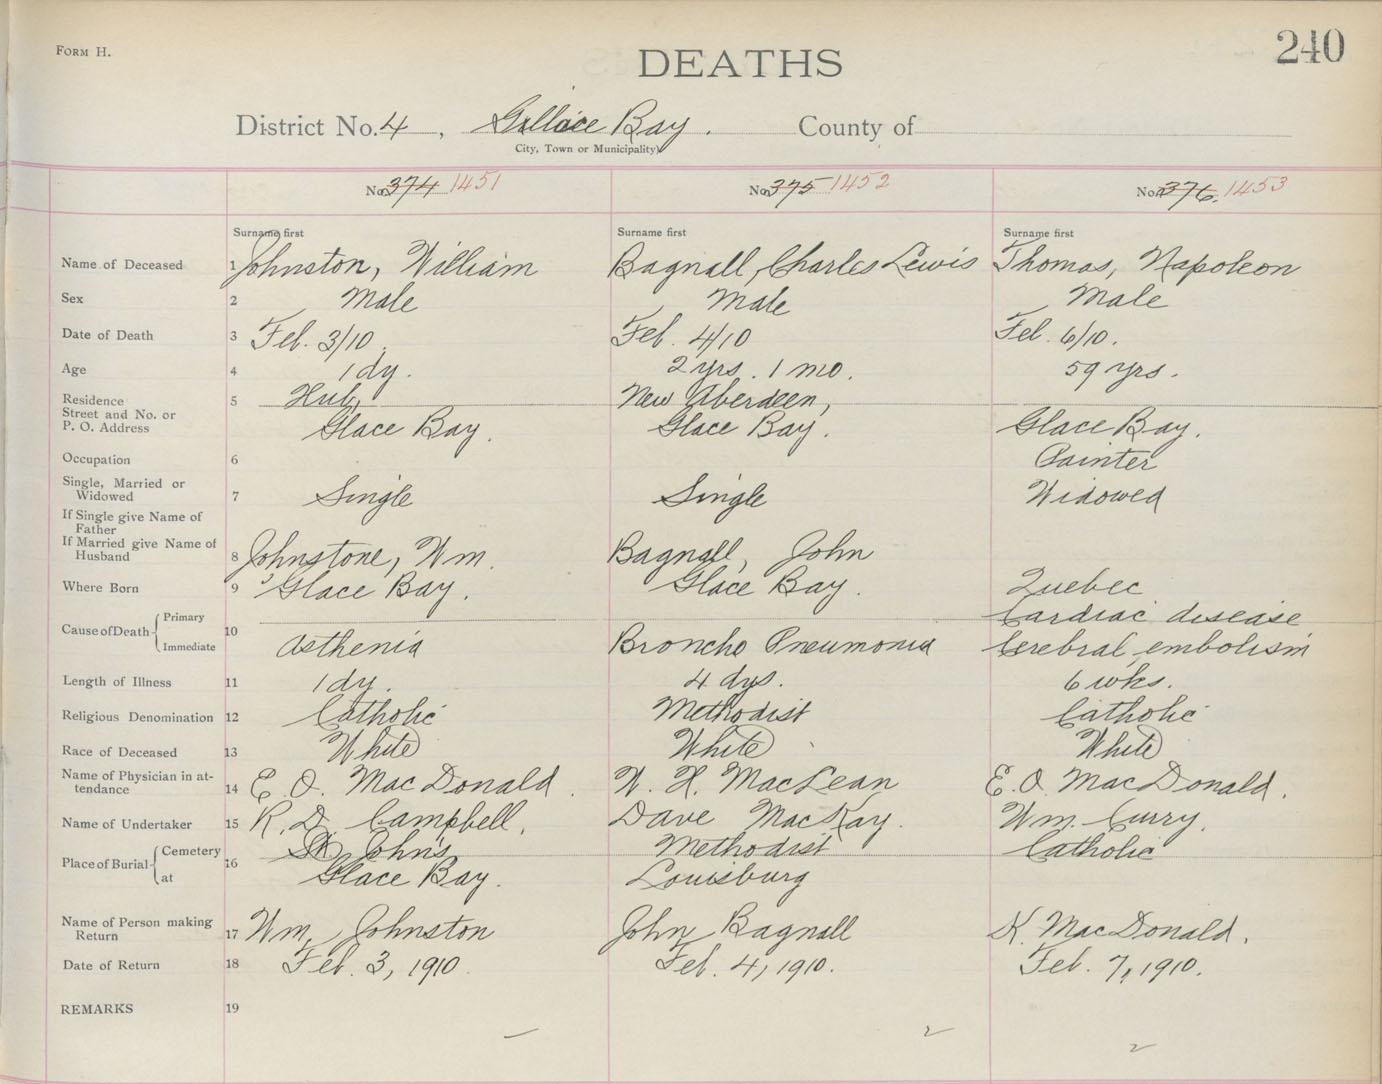 Form H.
240
DEATHS
District No. 4, Glace Bay. County of
City, Town or Municipality)
No. 374 1451 No. 375 1452 No. 376. 1453
Surname first Surname first Surname first
Name of Deceased 1 Johnston, William Bagnall, Charles Lewis Thomas, Napoleon
Sex 2 Male Male Male
Date of Death 3 Feb. 3/10. Feb. 4/10 Feb. 6/10.
Age 4 1 dy. 2 yrs. 1 mo. 59 yrs.
Residence 5 Hub, New Aberdeen,
Street and No. or
P. O. Address Glace Bay. Glace Bay. Glace Bay.
Occupation 6 Painter
Single, Married or
Widowed 7 Single Single Widowed
If Single give Name of
Father
If Married give Name of
Husband 8 Johnstone, Wm. Bagnall, John
Where Born 9 Glace Bay. Glace Bay. Quebec
Cause of Death Primary Cardiac disease
10
Immediate Asthenia Broncho Pneumonia Cerebral embolism
Length of Illness 11 1 dy. 4 dys. 6 wks.
Religious Denomination 12 Catholic Methodist Catholic
Race of Deceased 13 White White White
Name of Physician in at-
tendance 14 E. O. MacDonald. W. H. MacLean E. O. MacDonald.
Name of Undertaker 15 R. D. Campbell. Dave MacKay. Wm. Curry.
Place of Burial Cemetery St. John's Methodist Catholic
16
at Glace Bay. Louisburg
Name of Person making
Return 17 Wm. Johnston John Bagnall K. MacDonald.
Date of Return 18 Feb. 3, 1910. Feb. 4, 1910. Feb. 7, 1910.
REMARKS 19